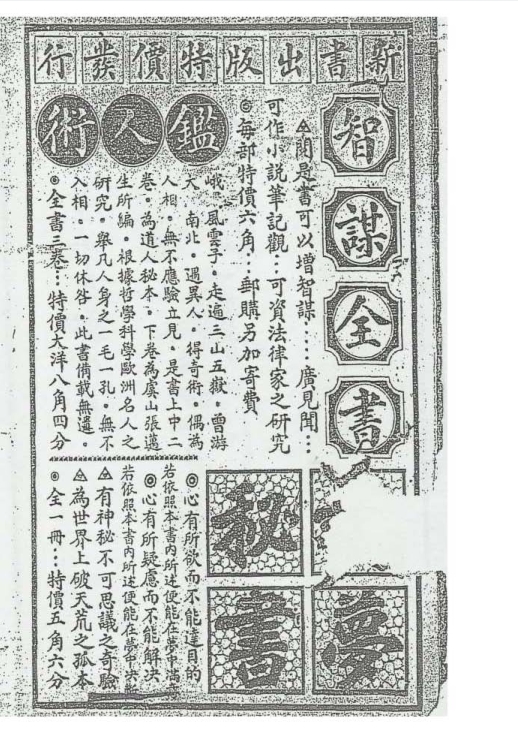 新書出版特價發行
智謀全書
△閱是書可以增智謀……廣見聞…
可作小說筆記觀…可資法律家之研究
◎每部特價六角…郵購另加寄費
鑑人術
峨 風雲子。走遍三山五嶽。曾游
大 南北。遇異人。得奇術。偶為
人相。無不應驗立見。是書上中二
卷。為道人秘本。下卷為虞山張邁
生所編。根據哲學科學歐洲名人之
研究。舉凡人身之一毛一孔。無不
入相。一切休咎。此書備載無遺。
◎全書三卷…特價大洋八角四分
夢
秘書
◎心有所欲而不能達目的
若依照本書內所述便能在夢中滿
◎心有所疑慮而不能解決
若依照本書內所述便能在夢中決
△有神秘不可思議之奇驗
△為世界上破天荒之孤本
◎全一冊…特價五角六分